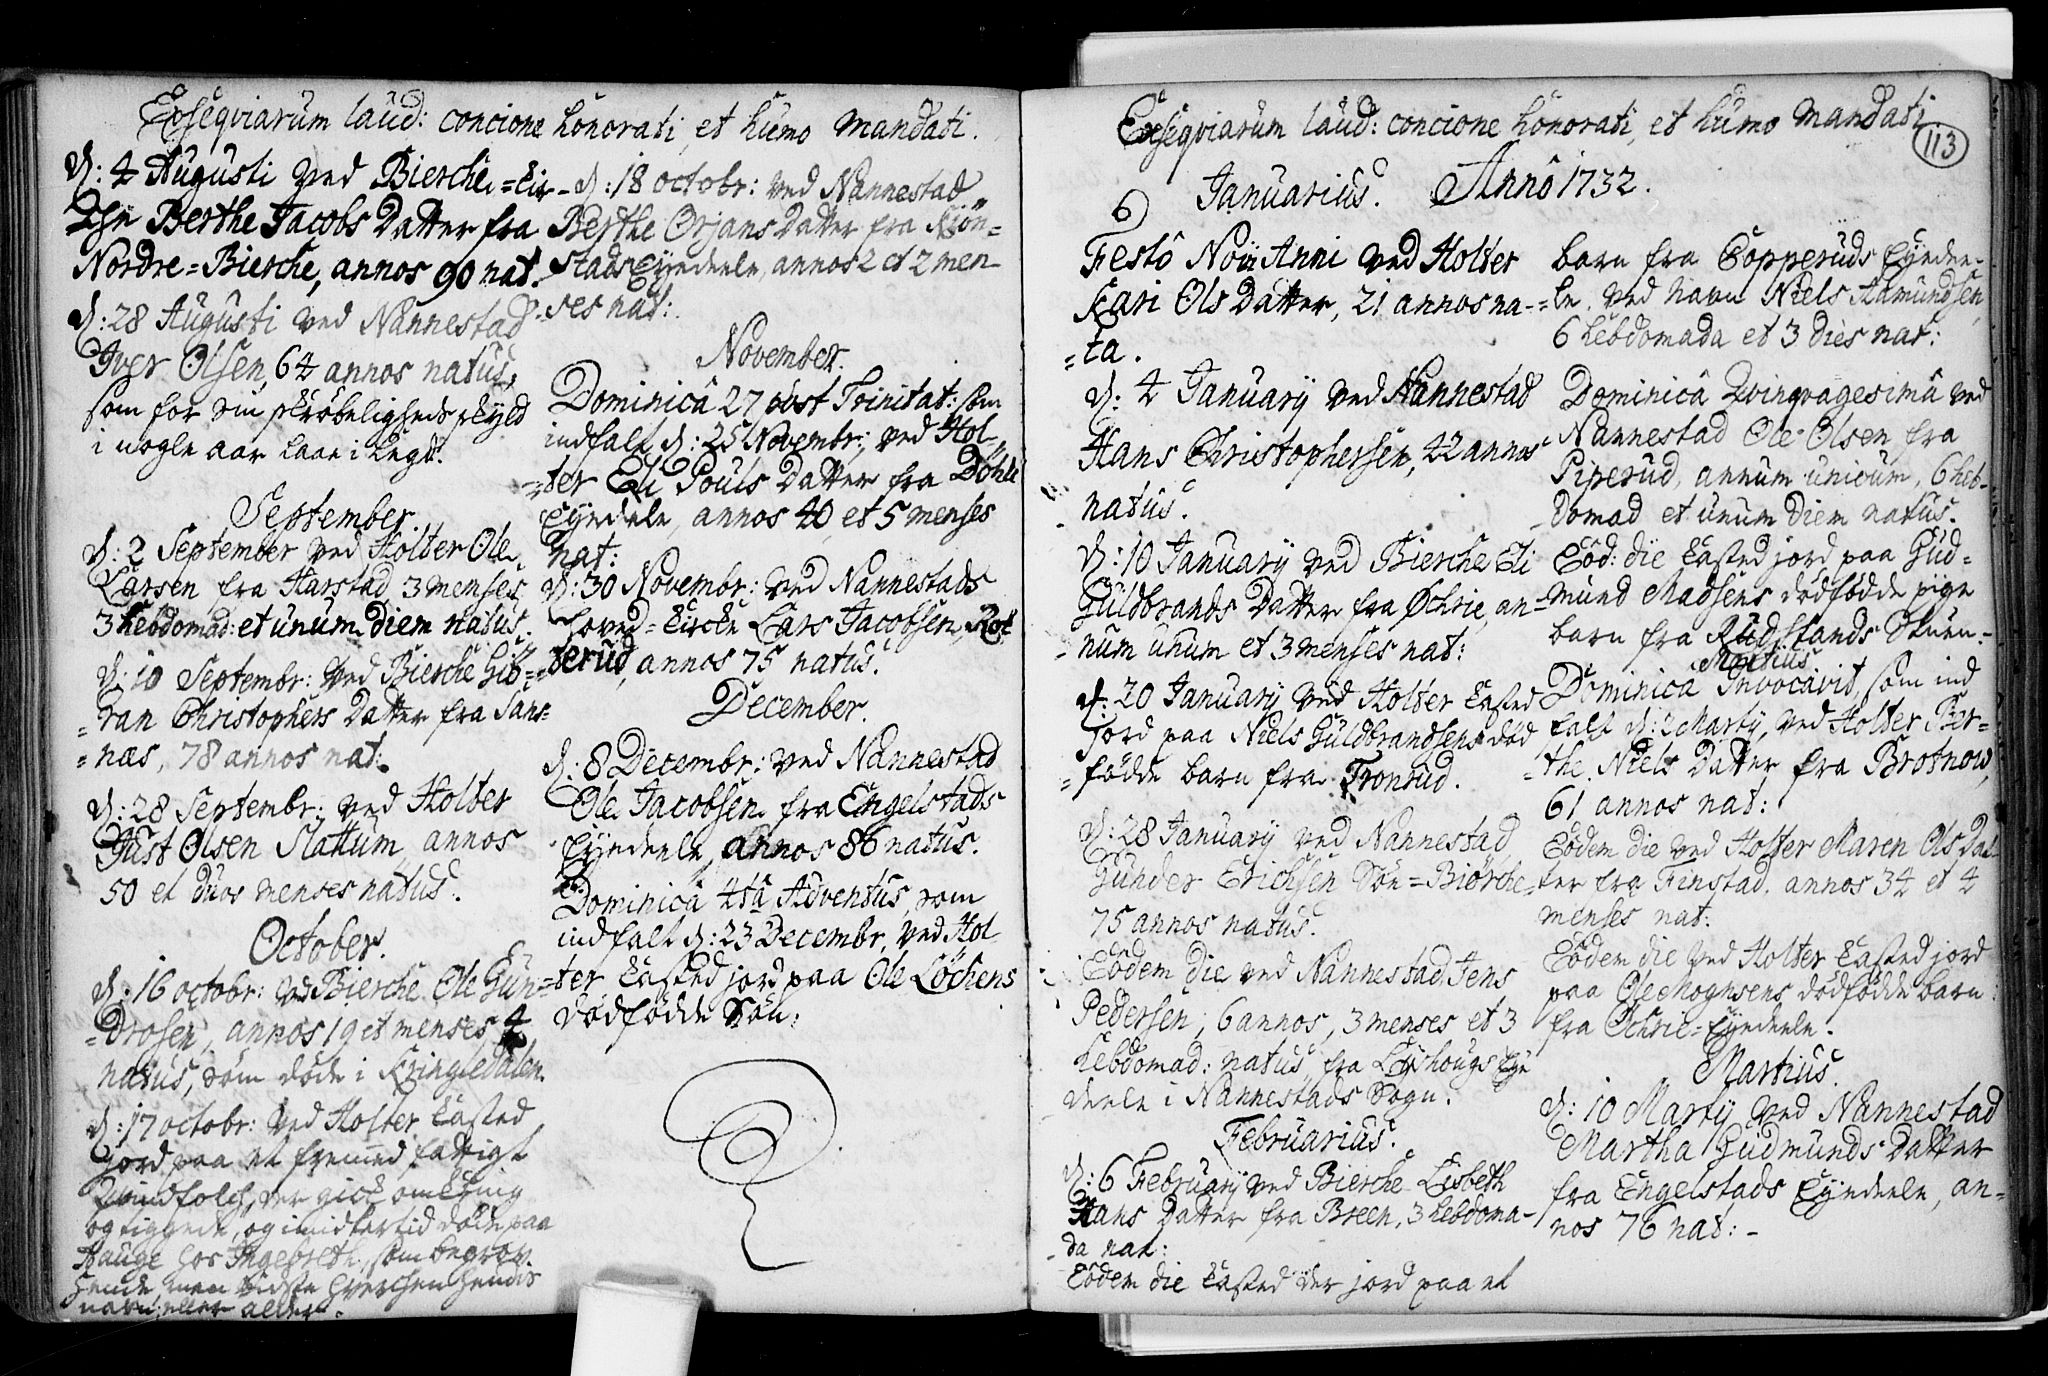 Exseqviarum laud: concione honorati, et humo mandati.
d: 4 Augusti ved Bierche-kir-
che Berthe Jacobs Datter fra
Nordre-Bierche, annos 90 nat.
d: 28 Augusti ved Nannestad
Iver Olsen, 64 annos natus,
som for sin skröbeligheds skyld
i nogle aar laae i Legd.
September.
d: 2 September ved Holter Ole
Larsen fra Harstad 3 menses
3 hebdomad: et unum diem natus.
d: 10 Septembr: ved Bierche Gib-
-ran Christophers Datter fra Sans-
-næs, 78 annos nat:
d: 28 Septembr: ved Holter
Just Olsen Slattum, annos
50 et duos menses natus.
October.
d: 16 octobr: ved Bierche Ole Gun-
-drosen, annos 19 et menses 4
natus, som döde i Kringledalen.
d: 17 octobr: ved Holter kasted
jord paa et fremmed fattigt
Qvindfolch, der gick omkring
og tiggede, og imidlertid döde paa
Hauge hos Ingebreth, som begrov
hende, men vidste hverchen hendes
navn eller alder.
d: 18 octobr: ved Nannestad
Berthe Orjans Datter fra Kjon-
stads Eyendele, annos 2 et 2 men-
-ses nat:
November.
Dominica 27 post Trinitat: som
indfalt d: 25 Novembr: ved Hol-
-ter Eli Pouls Datter fra Döhle
Eyendele, annos 40 et 5 menses
nat:
d: 30 Novembr: ved Nannestads
hoved-kircke Lars Jacobsen Rot-
terud, annos 75 natus.
December.
d: 8 Decembr: ved Nannestad
Ole Jacobsen fra Engelstads
Eyendele, annos 86 natus.
Dominica 4ta Adventus, som
indfalt d: 23 Decembr, ved Hol
-ter kasted jord paa Ole Löchens
dödfödde Sön.
Exseqviarum laud: concione honorati, et humo mandati
113
Januarius. Anno 1732.
Festo Novi Anni ved Holter
Kari Ols Datter, 21 annos na-
-ta.
d: 4 January ved Nannestad
Hans Christophersen, 42 annos
natus.
d: 10 January ved Bierche Eli
Guldbrands Datter fra Öchrie, an-
-num unum et 3 menses nat:
d: 20 January ved Holter kasted
jord paa Niels Guldbrandsens död
-födde barn fra Tronrud.
d: 28 January ved Nannestad
Gunder Erichsen Sön-Biørche
75 annos natus.
Eodem die ved Nannestad Jens
Pedersen, 6 annos, 3 menses et 3
hebdomad: natus, fra Lyshougs Eye
deele i Nannestads Sogn.
Februarius.
d: 6 February ved Bierche Lisbeth
Hans Datter fra Breen, 3 hebdoma-
da nat:
Eodem die kasted der jord paa et
barn fra Copperuds Eyende-
-le, ved navn Niels Aamundsen,
6 hebdomada et 3 dies nat:
Dominica Qvinqvagesima ved
Nannestad Ole Olsen fra
Piperud, annum unicum, 6 heb-
domad et unum diem natus.
Eod: die kasted jord paa Gud-
mund Madsens dödfödde pige
barn fra Rudstands Stuen-
Martius
Dominica Invocavit, som ind
falt d: 2 Marty, ved Holter Ber-
-the Niels Datter fra Brotnow,
61 annos nat:
Eodem die ved Holter Maren Ols Dat-
ter fra Finstad, annos 34 et 4
menses nat:
Eodem die ved Holter kasted jord
paa Ole Mognsens dödfödde barn
fra Öchrie-Eyendele.
Martius.
d: 10 Marty ved Nannestad
Martha Gudmunds Datter
fra Engelstads Eyendele, an-
nos 76 nat:-